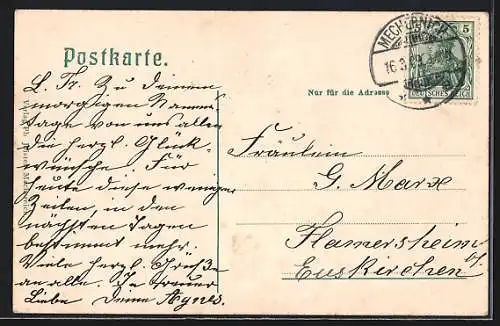 Postkarte.
Nur für die Adresse
MECHERNICH
16.3.09
5
DEUTSCHES REICH
L. Tr. Zu Deinem
morgigen Namens
tage von uns allen
die herzl. Glück-
wünsche. Für
heute diese wenigen
Zeilen, in den
nächsten Tagen
bestimmt mehr.
Viele herzl. Grüße
an alle. In treuer
Liebe Deine Agnes.
Fräulein
G. Marx
Flamersheim
Euskirchen